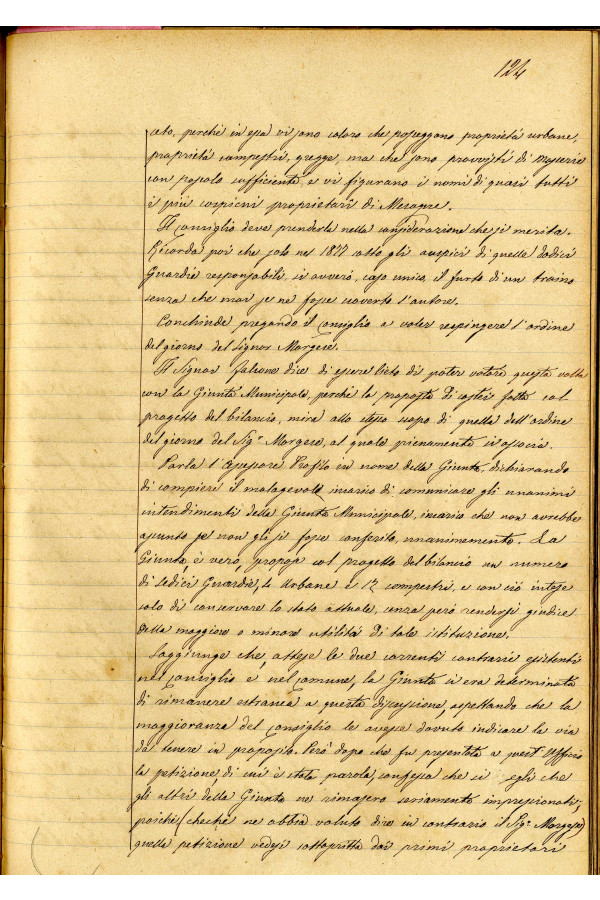 124
ceto, perchè in essa vi sono coloro che posseggono proprietà urbane,
proprietà campestri, gregge, ma che sono provvisti di masserie
con popolo sufficiente, e vi figurano i nomi di quasi tutti
i più cospicui proprietarî di Mesagne.
Il Consiglio deve prenderla nella considerazione che si merita.
Ricorda poi che solo nel 1877 sotto gli auspici di quelle dodici
Guardie responsabili, si avverò, caso unico, il furto di un traino
senza che mai se ne fosse scoverto l'autore.
Conchiude pregando il Consiglio a voler respingere l'ordine
del giorno del Signor Morgese.
Il Signor Falcone dice di essere lieto di poter votare questa volta
con la Giunta Municipale, perchè la proposta di costei fatta col
progetto del bilancio, mira allo stesso scopo di quella dell'ordine
del giorno del Sig.r Morgese, al quale pienamente si associa.
Parla l'Assessore Profilo in nome della Giunta, dichiarando
di compiere il malagevole incarico di comunicare gli unanimi
intendimenti della Giunta Municipale, incarico che non avrebbe
assunto se non gli si fosse conferito unanimemente. La
Giunta, è vero, propose col progetto del bilancio un numero
di sedici Guardie, 4 Urbane e 12 campestri, e con ciò intese
solo di conservare lo stato attuale, senza però rendersi giudice
della maggiore o minore utilità di tale istituzione.
Soggiunge che, attese le due correnti contrarie esistenti
nel Consiglio e nel Comune, la Giunta si era determinata
di rimanere estranea a questa discussione, aspettando che la
maggioranza del Consiglio le avesse dovuto indicare la via
da tenere in proposito. Però dopo che fu presentata a quest'Ufficio
la petizione, di cui è stata parola, confessa che sì egli che
gli altri della Giunta ne rimasero seriamente impressionati,
poichè (checchè ne abbia voluto dire in contrario il Sig.r Morgese)
quella petizione vedesi sottoscritta dai primi proprietari